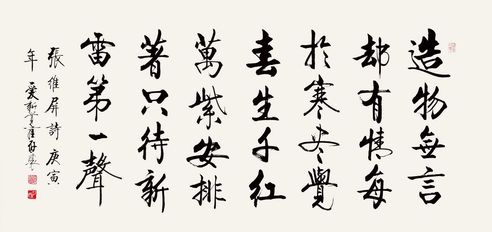 造物無言
却有情每
於寒盡覺
春生千紅
萬紫安排
著只待新
雷第一聲
張維屏詩 庚寅
年 愛新覺羅